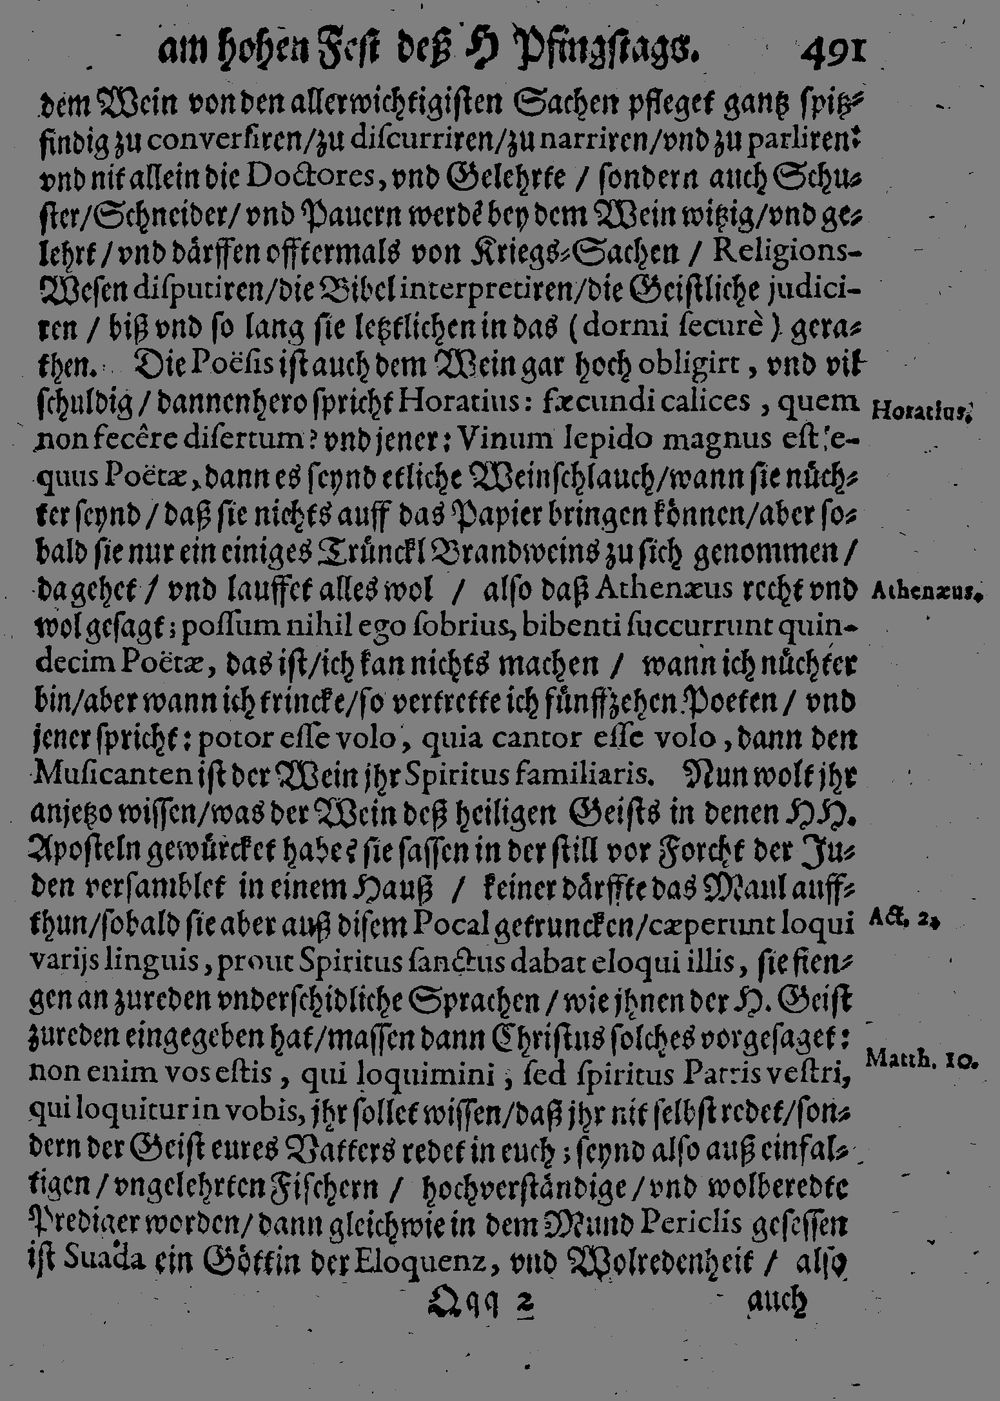 am hohen Fest deß H Pfingstags. 491
dem Wein von den allerwichtigisten Sachen pfleget gantz spitz-
findig zu conversiren/zu discurriren/zu narriren/vnd zu parliren:
vnd nit allein die Doctores, vnd Gelehrte / sondern auch Schu-
ster/Schneider/ vnd Pauern werdē bey dem Wein witzig/vnd ge-
lehrt / vnd därffen offtermals von Kriegs-Sachen / Religions-
Wesen disputiren/die Bibel interpretiren/die Geistliche judici-
ren / biß vnd so lang sie letztlichen in das (dormi securè) gera-
then. Die Poësis ist auch dem Wein gar hoch obligirt, vnd vil
schuldig / dannenhero spricht Horatius: fæcundi calices, quem
Horatius.
non fecêre disertum? vnd jener: Vinum lepido magnus est e-
quus Poëtæ, dann es seynd etliche Weinschlauch/wann sie nüch-
ter seynd / daß sie nichts auff das Papier bringen können/aber so-
bald sie nur ein einiges Trünckl Brandweins zu sich genommen /
da gehet / vnd lauffet alles wol / also daß Athenæus recht vnd
Athenæus.
wol gesagt; possum nihil ego sobrius, bibenti succurrunt quin-
decim Poëtæ, das ist/ich kan nichts machen / wann ich nüchter
bin/aber wann ich trincke/so vertrette ich fünffzehen Poeten / vnd
jener spricht: potor esse volo, quia cantor esse volo, dann den
Musicanten ist der Wein jhr Spiritus familiaris. Nun wolt jhr
anjetzo wissen/was der Wein deß heiligen Geists in denen HH.
Aposteln gewürcket habe? sie sassen in der still vor Forcht der Ju-
den versamblet in einem Hauß / keiner därffte das Maul auff-
thun/sobald sie aber auß disem Pocal getruncken/cæperunt loqui
Act. 2.
varijs linguis, prout Spiritus sanctus dabat eloqui illis, sie fien-
gen an zureden vnderschidliche Sprachen / wie jhnen der H. Geist
zureden eingegeben hat/massen dann Christus solches vorgesaget:
non enim vos estis, qui loquimini, sed spiritus Patris vestri,
Matth. 10.
qui loquitur in vobis, jhr sollet wissen/daß jhr nit selbst redet/son-
dern der Geist eures Vatters redet in euch; seynd also auß einfal-
tigen / vngelehrten Fischern / hochverständige / vnd wolberedte
Prediger worden/dann gleichwie in dem Mund Periclis gesessen
ist Suada ein Göttin der Eloquenz, vnd Wolredenheit / also
Qqq 2 auch